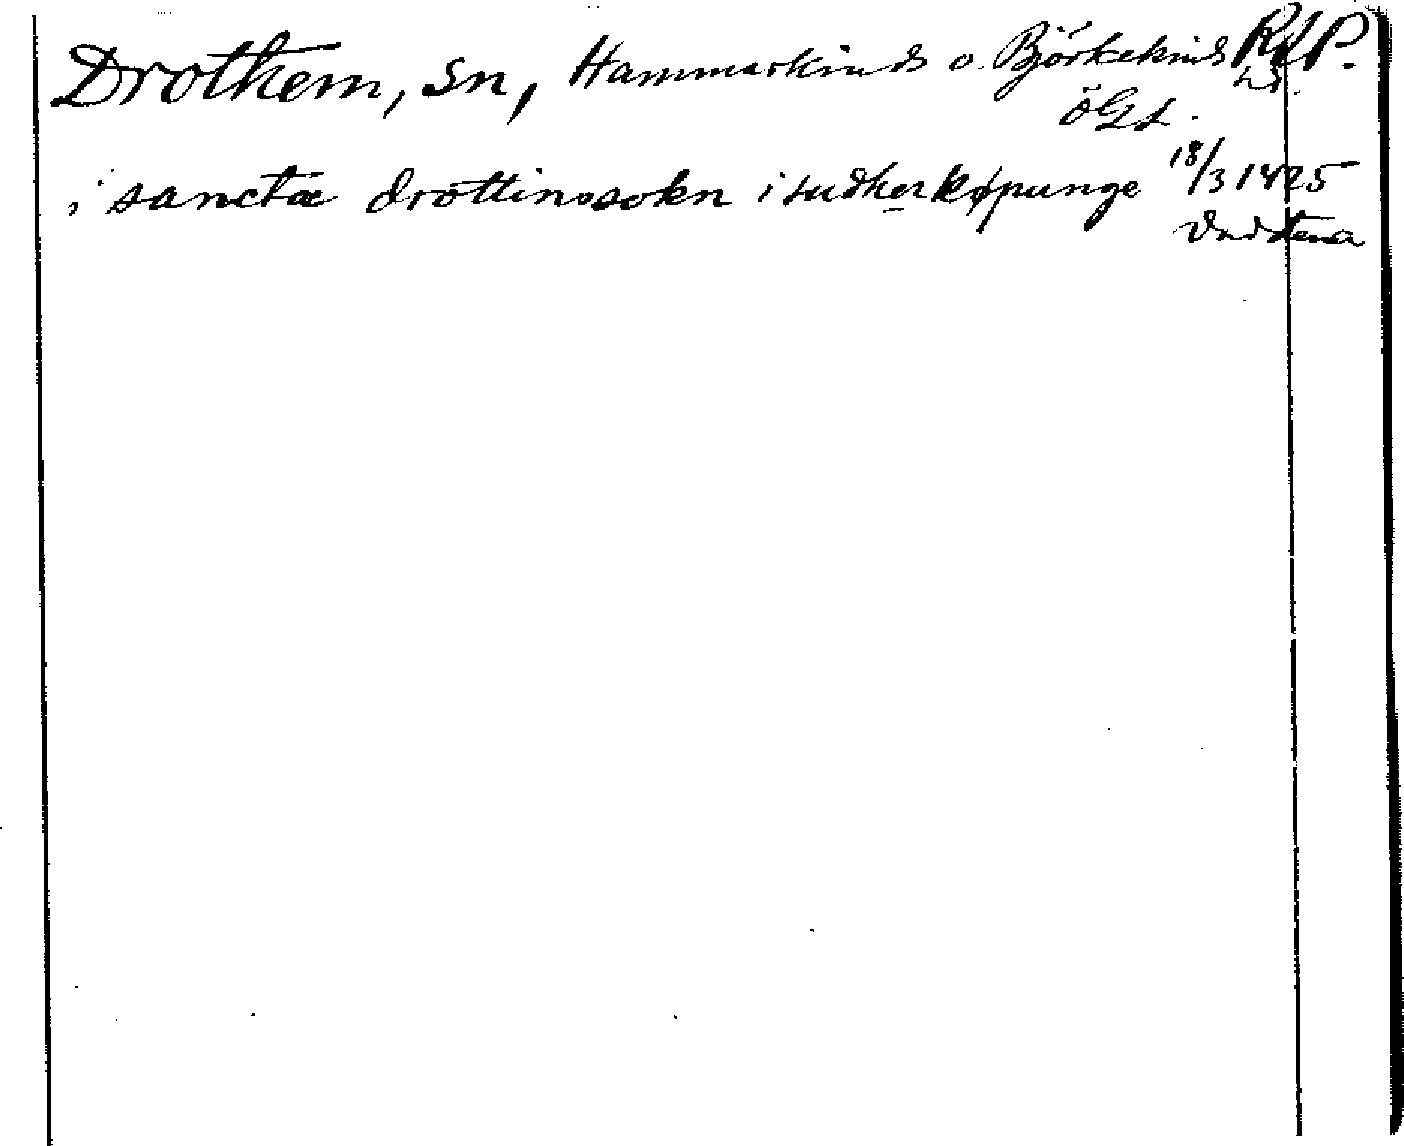 Drothem, sn, Hammarkinds o. Björkekinds RAP.
hd.
ÖGL.
i sancta drottinssokn i sudherkøpunge 18/3 1425
Vadstena